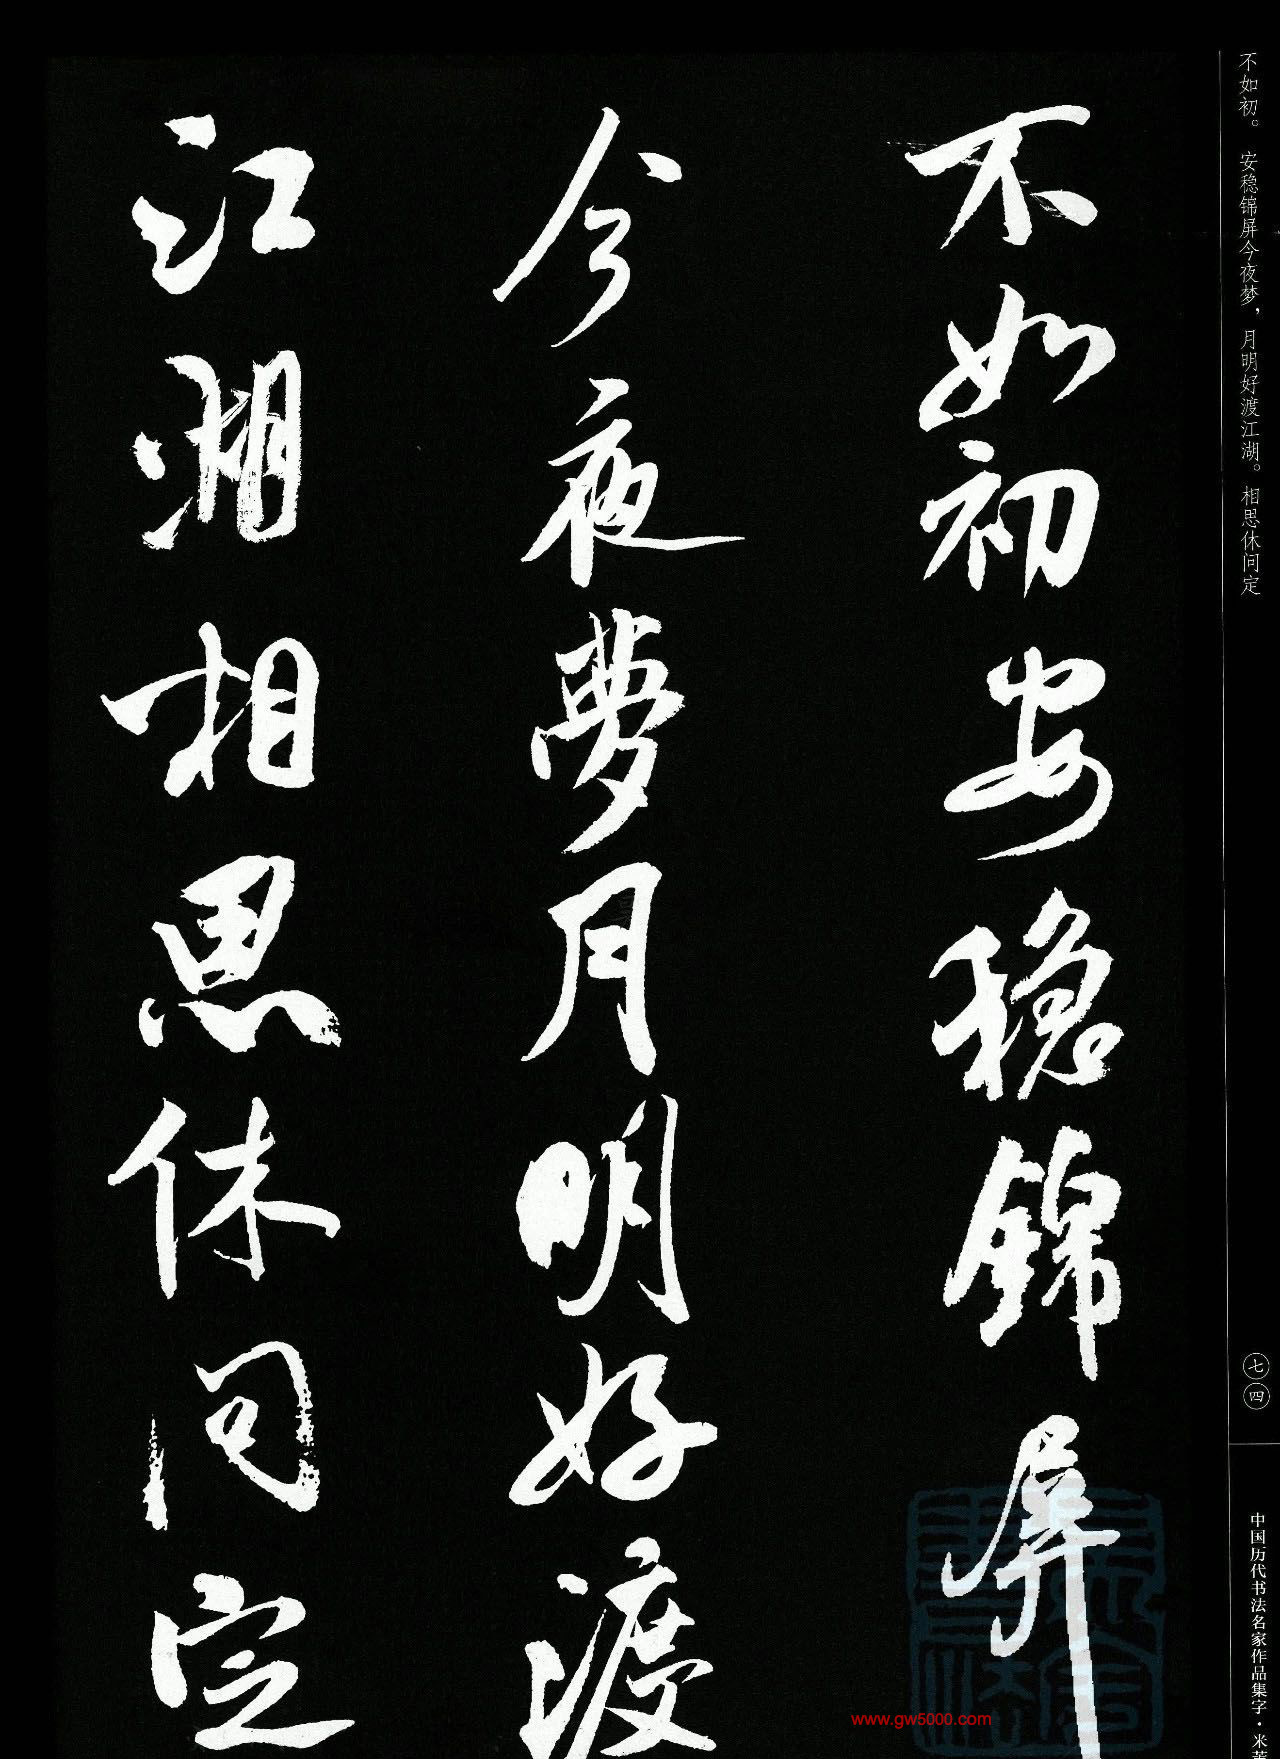 不如初。安稳锦屏今夜梦，月明好渡江湖。相思休问定
不如初安穩錦屏
今夜夢月明好渡
江湖相思休问定
七四
中国历代书法名家作品集字·米芾
www.gw5000.com